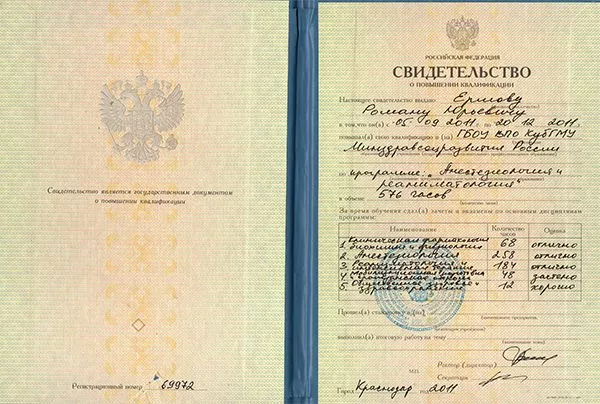 Свидетельство является государственным документом
о повышении квалификации
Регистрационный номер 69972
РОССИЙСКАЯ ФЕДЕРАЦИЯ
СВИДЕТЕЛЬСТВО
О ПОВЫШЕНИИ КВАЛИФИКАЦИИ
Настоящее свидетельство выдано
Роману Юрьевичу
в том, что он(а) с 05.09 2011 г. по 20.12 2011
повышал(а) свою квалификацию в (на) ГБОУ ВПО КубГМУ
Минздравсоцразвития России
по программе: „Анестезиология и
реаниматология"
в объеме 576 часов
За время обучения сдал(а) зачеты и экзамены по основным дисциплинам
программы:
Наименование Количество часов Оценка
1. Клиническая фармакология биохимия и физиология 68 отлично
2. Анестезиология 258 отлично
3. и интенсивная терапия 184 отлично
4. 48 зачтено
5. Общественное здоровье и здравоохранение 12 хорошо
Прошел(а) стажировку в (на)
выполнил(а) итоговую работу на тему
Ректор (директор)
М.П. Секретарь
Город Краснодар 2011